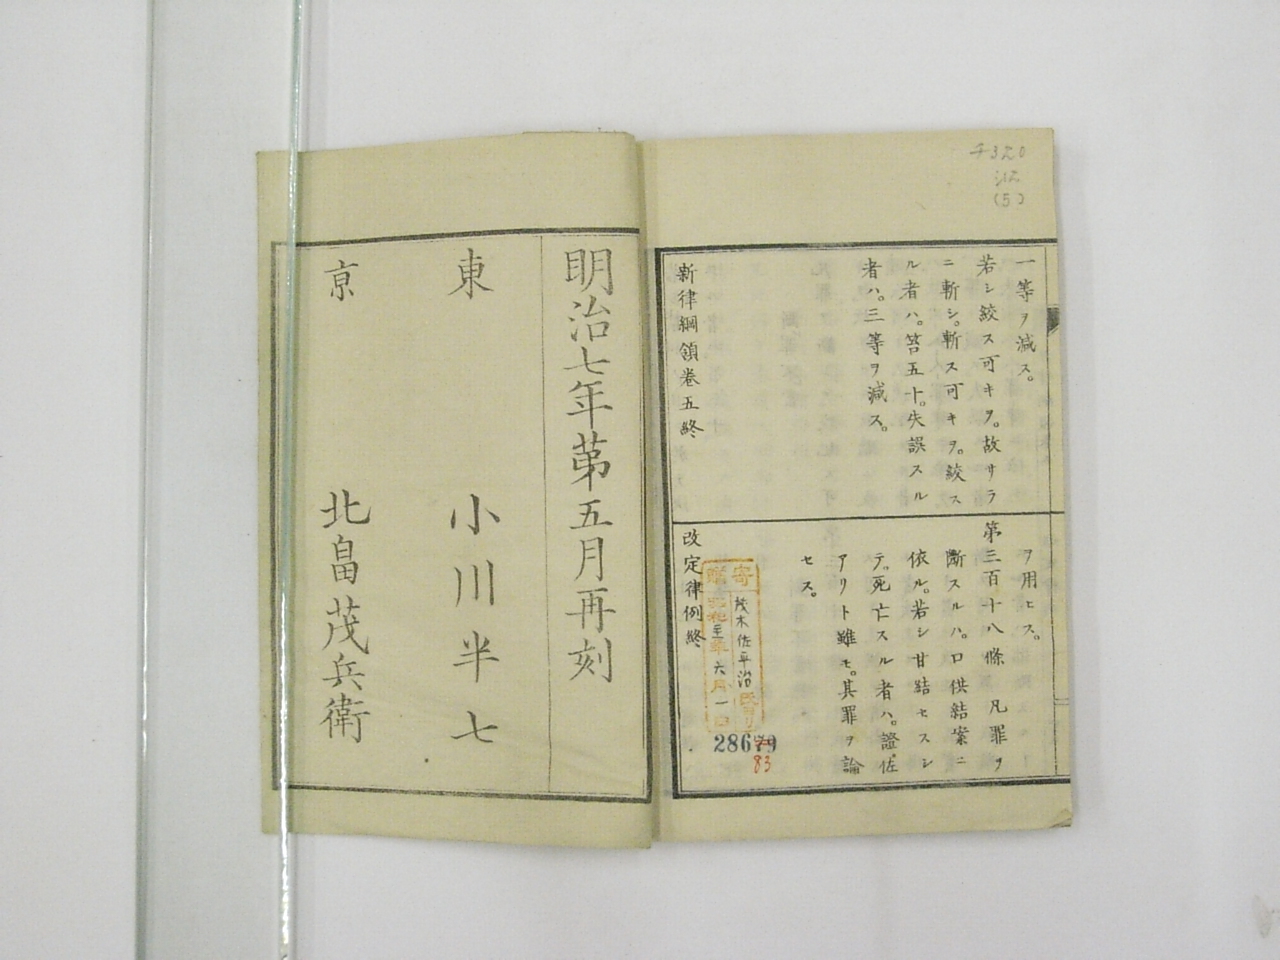 チ320
(5)
一等ヲ減ス。
若シ絞ス可キヲ。故サラ
ニ斬シ。斬ス可キヲ。絞ス
ル者ハ。笞五十。失誤スル
者ハ。三等ヲ減ス。
新律綱領卷五終
ヲ用ヒス。
第三百十八條 凡罪ヲ
斷スルハ。口供結案ニ
依ル。若シ甘結セスシ
テ。死亡スル者ハ。證佐
アリト雖モ。其罪ヲ論
セス。
改定律例終
寄贈
茂木佐平治
六月一日
28679
83
明治七年第五月再刻
東 小川半七
京 北畠茂兵衛